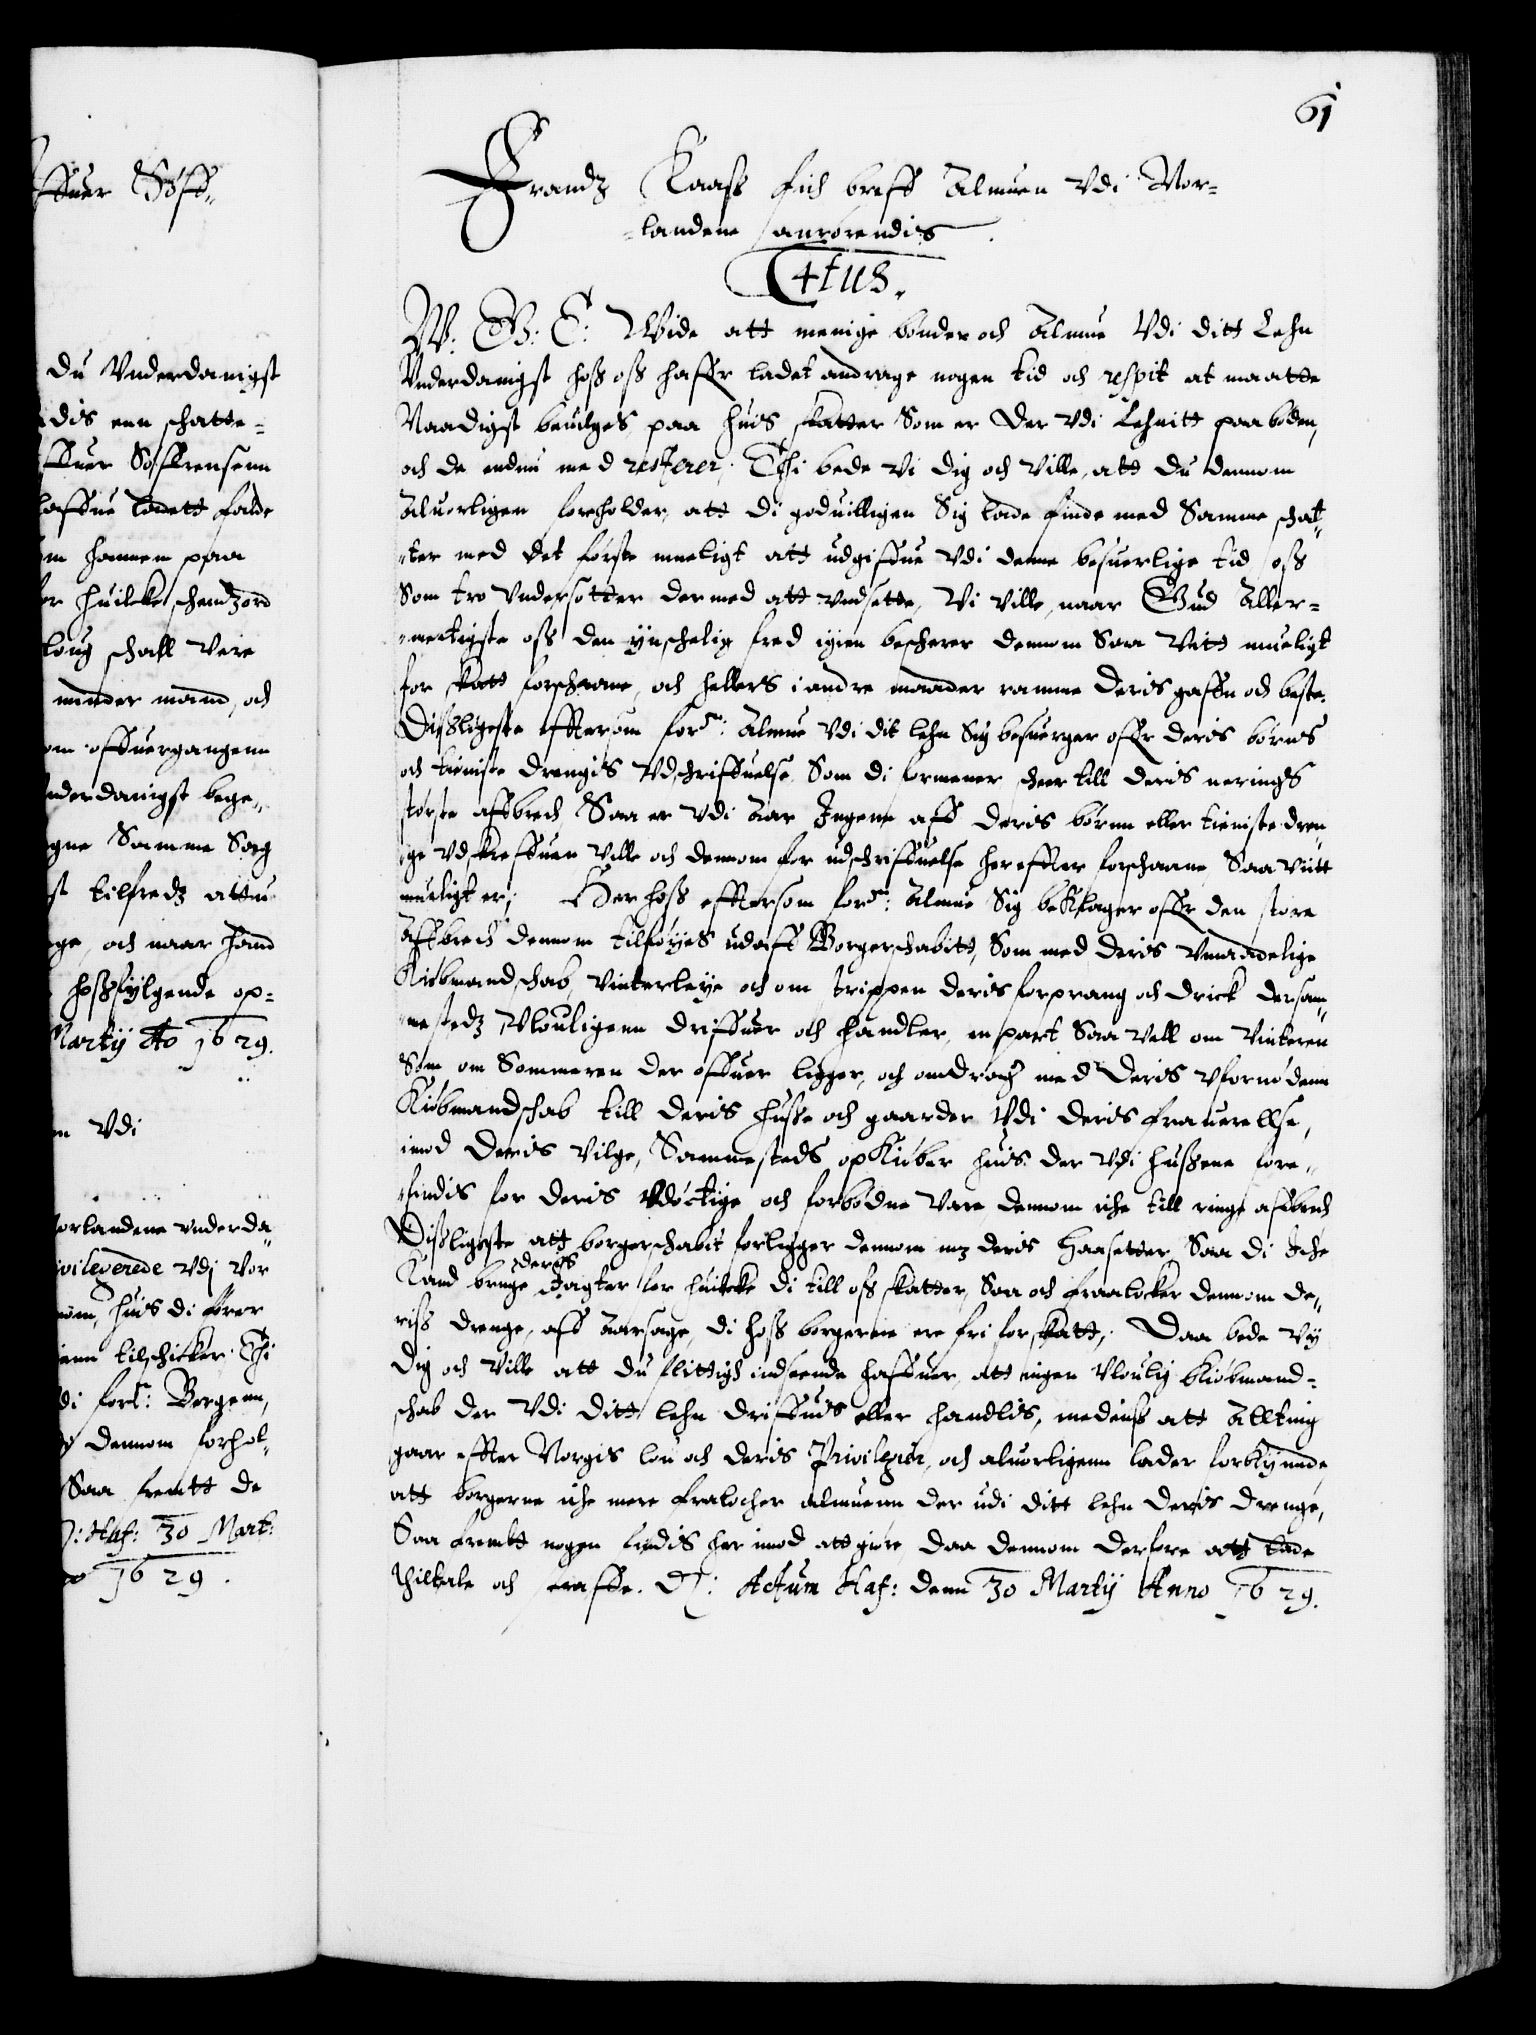 61
ffuer Søff-
Frandz Kaass fich breff Almuen Vdi Nor-
-landene anrørendis
C4tus.
W: G: T: Wide att menige bønder och Almue Vdi ditt Lehn
Vnderdanigst hoss oss haffr ladet andrage nogen tid och respit at maatte
Naadigst beuilges paa huis skatter Som er der vdi Lehnitt paaboden,
och de endnu med resterer, Thi bede vi dig och ville, att du dennom
Aluorligen foreholder, att di goduilligen Sig lade finde med Samme schat-
-ter med det første mueligt att udgiffue vdi denne besuerlige tid oss
Som tro Vndersotter dermed att vndsette, Vi ville, naar Gud Aller-
-mectigste oss den ynschelig fred igien bescherer dennom Saa Vitt mueligt
for skatt forschaane, och hellers i andre maader ramme deris gaffn och beste.
Disligeste effttersom forne: Almue Vdi dit lehn Sig besuerger offr deris børns
och tieniste drengis Vdschriffuelse, Som di formener scheer till deris nerings
største affbrech Saa er vdi Aar Ingenn aff deris børnn eller tieniste dren-
-ge vdskreffuen ville och dennom for udschriffuelse hereffter forschaane, Saa vitt
mueligt er, Der hoss effttersom forne: Almue Sig beklager offr den store
Affbrech dennom tilføyes udaff Borgerschabitt, Som med deris Vmaadelige
Kiøbmandschab, Vinterleye och om trippen deris forprang och drick dersam-
-mestedz Vlouligenn driffuer och handler, en part Saa vell om Vinteren
Som om Sommeren der offuer ligger, och omdrager med deris vfornødenn
Kiøbmandschab till deris Husse och gaarder Vdi deris frauerellse,
imod deris Vilge, Sammesteds opkiøber huis der vdi hussene fore-
-findis for deris Vdøctige och forbodne Vare, dennom iche till ringe affbrech
Disligeste att borgerschabit forligger dennom mz deris Haasetter, Saa di Iche
Kand bruge deris Jagter for huilcke di till oss skatter, Saa och fraalocker dennom de-
riss drenge, aff Aarsage, di hoss borgerne ere fri for skatt, Daa bede Vy
dig och Ville att du flittigh indseende haffuer, att ingen Vloulig kiøbmand-
schab der Vdi ditt lehn driffuis eller handlis, medenss att Allting
gaar effter Norgis lou och deris Privilegier, och aluorligenn lader forkynnde,
att borgerne iche mere fralocher almuenn der udi ditt lehn deris drenge,
Saa frembt nogen findis her imod att giøre, daa dennom derfore att lade
thiltale och straffe. D: Actum Haf: denn 30 Martij Anno 1629.
du Vnderdanigst
dis enn schatte-
ffuer Søffrensenn
haffue ladett falde
om hannem paa
er huilcke schendzord
loug schall Vere
minder mand, och
om offuergangenn
nderdanigst bege-
gne Samme Sag
st tilfredz attu
ge, och naar hand
hossfylgende op-
Martij Ao 1629.
n Vdi
orlandene vnderda-
ivilegerede vdj Vor
nom, huis di fører
ienn tilschicker. Thi
di forne: Bergenn,
dennom forhol-
Saa fremtt de
D: Haf: 30 Mart:
o 1629.